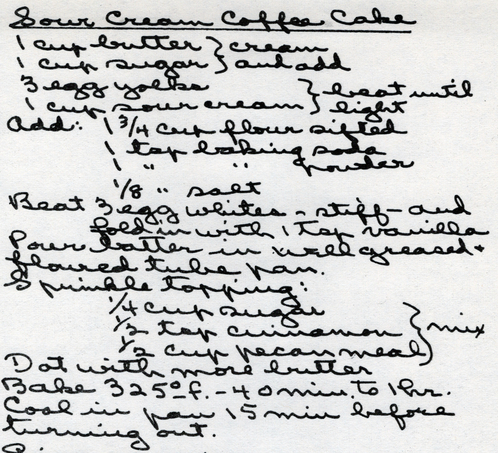 Sour Cream Coffee Cake
1 cup butter } cream
1 cup sugar } and add
3 egg yolks } beat until
1 cup sour cream } light
Add: 1 3/4 cup flour sifted
1 tsp baking soda
1 " " powder
1/8 " salt
Beat 3 egg whites - stiff - and
fold in with 1 tsp vanilla
Pour batter in well greased +
floured tube pan.
Sprinkle topping:
1/4 cup sugar
1/2 tsp cinnamon } mix
1/2 cup pecan meal
Dot with more butter
Bake 325° f. - 40 min. to 1 hr.
Cool in pan 15 min before
turning out.